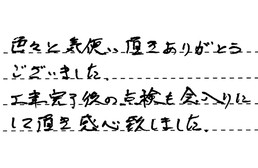 色々と気使い頂きありがとう
ございました。
工事完了後の点検も念入りに
して頂き感心致しました。